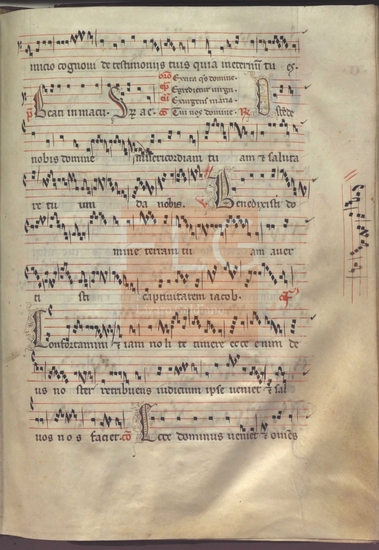 inicio cognovi de testimoniis tuis quia ineternu tu es.
Beati inmacu. Exaea qd domine.
Egredietur virga.
Exurgens maria.
Tu nos domine. R. Ostede
nobis domine misericordiam tu am & saluta
re tu um da nobis. V. Benedixisti do
mine terram tu am aver
ti sti captivitatem iacob. Of
Confortamini & iam no li te timere ecce enim de
us no ster retribuens iudicium ipse veniet & sal
vos nos faciet. co Ecce dominus veniet & omes